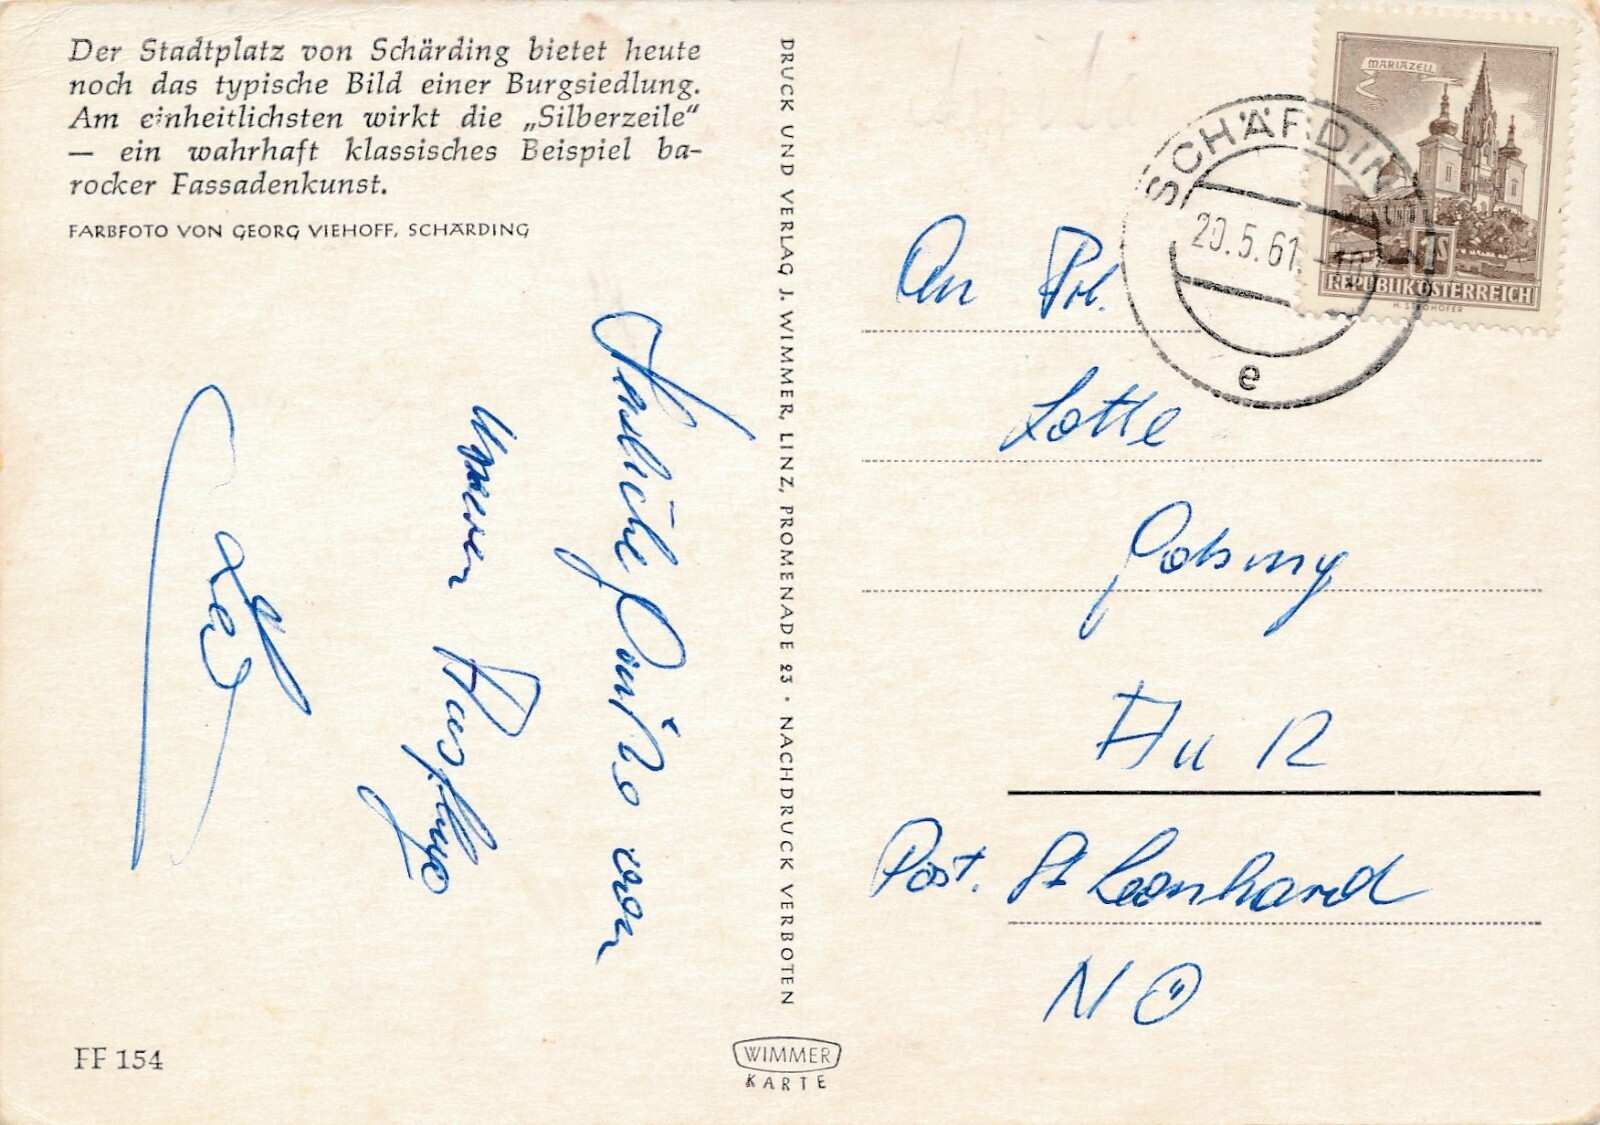 Der Stadtplatz von Schärding bietet heute
noch das typische Bild einer Burgsiedlung.
Am einheitlichsten wirkt die „Silberzeile“
— ein wahrhaft klassisches Beispiel ba-
rocker Fassadenkunst.
FARBFOTO VON GEORG VIEHOFF, SCHÄRDING
Herzliche Grüße von
unserem
FF 154
DRUCK UND VERLAG J. WIMMER, LINZ, PROMENADE 23 • NACHDRUCK VERBOTEN
WIMMER
KARTE
MARIAZELL
1S
REPUBLIK ÖSTERREICH
SCHÄRDING
20.5.61
e
An Frl.
Lotte
Post. St Leonhard
NÖ